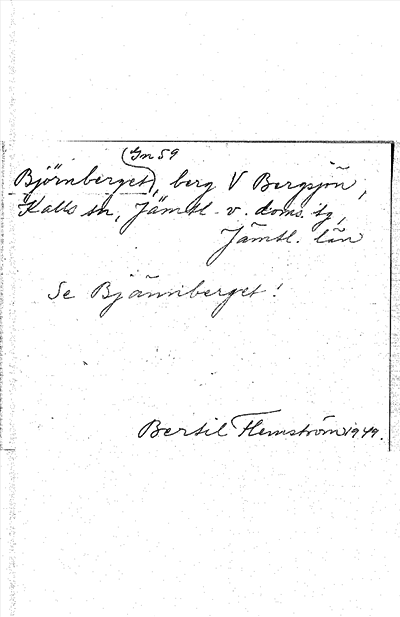 (Gn 59
Björnberget), berg V Bergsjön,
Kalls sn, Jämtl. v. doms. tg,
Jämtl. län
Se Björnnberget!
Bertil Flemström 1949.